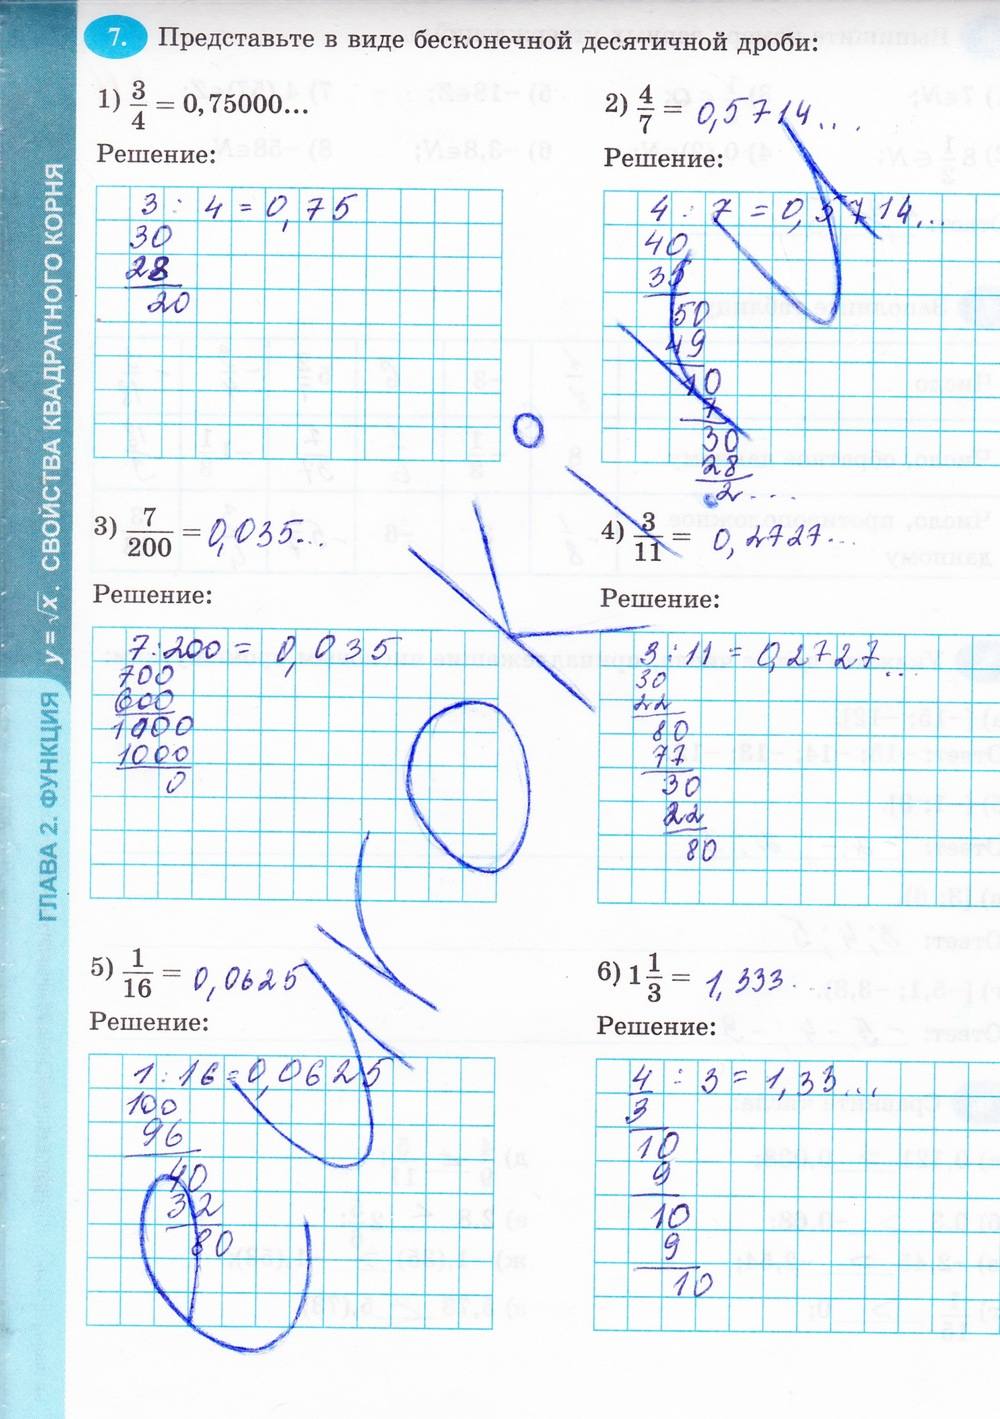 7. Представьте в виде бесконечной десятичной дроби:
1) 3/4 = 0,75000...
Решение:
3 : 4 = 0,75
30
28
20
2) 4/7 = 0,5714...
Решение:
4 : 7 = 0,5714...
40
35
50
49
10
7
30
28
2...
3) 7/200 = 0,035...
Решение:
7:200 = 0,035
700
600
1000
1000
0
4) 3/11 = 0,2727...
Решение:
3 : 11 = 0,2727...
30
22
80
77
30
22
80
5) 1/16 = 0,0625
Решение:
1 : 16 = 0,0625
100
96
40
32
80
6) 1 1/3 = 1,333...
Решение:
4 : 3 = 1,33...
3
10
9
10
9
10
ГЛАВА 2. ФУНКЦИЯ y = √x. СВОЙСТВА КВАДРАТНОГО КОРНЯ